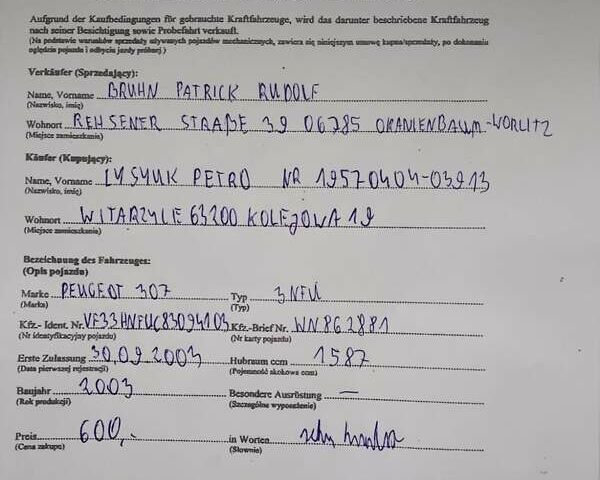 Aufgrund der Kaufbedingungen für gebrauchte Kraftfahrzeuge, wird das darunter beschriebene Kraftfahrzeug
nach seiner Besichtigung sowie Probefahrt verkauft.
(Na podstawie warunków sprzedaży używanych pojazdów mechanicznych, zawiera się niniejszym umowę kupna/sprzedaży, po dokonaniu
oględzin pojazdu i odbyciu jazdy próbnej.)
Verkäufer (Sprzedający):
Name, Vorname BRUHN PATRICK RUDOLF
(Nazwisko, imię)
Wohnort REHSENER STRAßE 39 06785 ORANIENBAUM-WÖRLITZ
(Miejsce zamieszkania)
Käufer (Kupujący):
Name, Vorname LYSYUK PETRO NR 19570404-03913
(Nazwisko, imię)
Wohnort WITARZYLE 63200 KOLEJOWA 19
(Miejsce zamieszkania)
Bezeichnung des Fahrzeuges:
(Opis pojazdu)
Marke PEUGEOT 307 Typ 3NFU
(Marka) (Typ)
Kfz.- Ident. Nr. VF33HNFUC83094103 Kfz.-Brief Nr. WN862881
(Nr identyfikacyjny pojazdu) (Nr karty pojazdu)
Erste Zulassung 30.09.2003 Hubraum ccm 1587
(Data pierwszej rejestracji) (Pojemność skokowa ccm)
Baujahr 2003 Besondere Ausrüstung —
(Rok produkcji) (Szczególne wyposażenie)
Preis 600,- in Worten
(Cena zakupu) (Słownie)